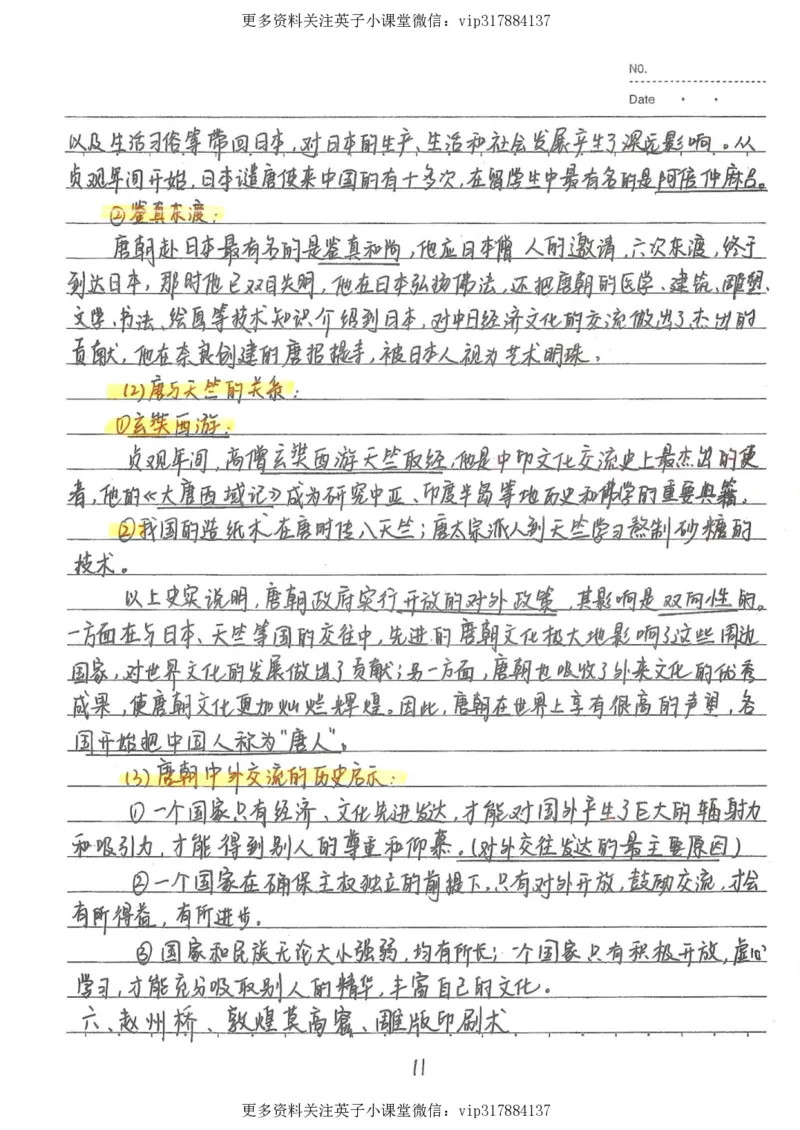 更多资料关注英子小课堂微信：vip317884137
NO.
Date
以及生活习俗等带回日本，对日本的生产、生活和社会发展产生了深远影响。从
贞观年间开始，日本遣唐使来中国的有十多次，在留学生中最有名的是阿倍仲麻吕。
②鉴真东渡：
唐朝赴日本最有名的是鉴真和尚，他应日本僧人的邀请，六次东渡，终于
到达日本，那时他已双目失明，他在日本弘扬佛法，还把唐朝的医学、建筑、雕塑、
文学、书法、绘画等技术知识介绍到日本，对中日经济文化的交流做出了杰出的
贡献，他在奈良创建的唐招提寺，被日本人视为艺术明珠。
(2)唐与天竺的关系：
①玄奘西游：
贞观年间，高僧玄奘西游天竺取经，他是中印文化交流史上最杰出的使
者，他的《大唐西域记》成为研究中亚、印度半岛等地历史和佛学的重要典籍。
②我国的造纸术在唐时传入天竺；唐太宗派人到天竺学习熬制砂糖的
技术。
以上史实说明，唐朝政府实行开放的对外政策，其影响是双向性的。
一方面在与日本、天竺等国的交往中，先进的唐朝文化极大地影响了这些周边
国家，对世界文化的发展做出了贡献；另一方面，唐朝也吸收了外来文化的优秀
成果，使唐朝文化更加灿烂辉煌。因此，唐朝在世界上享有很高的声望，各
国开始把中国人称为“唐人”。
(3)唐朝中外交流的历史启示：
①一个国家只有经济、文化先进发达，才能对国外产生了巨大的辐射力
和吸引力，才能得到别人的尊重和仰慕。(对外交往发达的最主要原因)
②一个国家在确保主权独立的前提下，只有对外开放，鼓励交流，才会
有所得益，有所进步。
③国家和民族无论大小强弱，均有所长；一个国家只有积极开放，虚心
学习，才能充分吸取别人的精华，丰富自己的文化。
六、赵州桥、敦煌莫高窟、雕版印刷术
11
更多资料关注英子小课堂微信：vip317884137